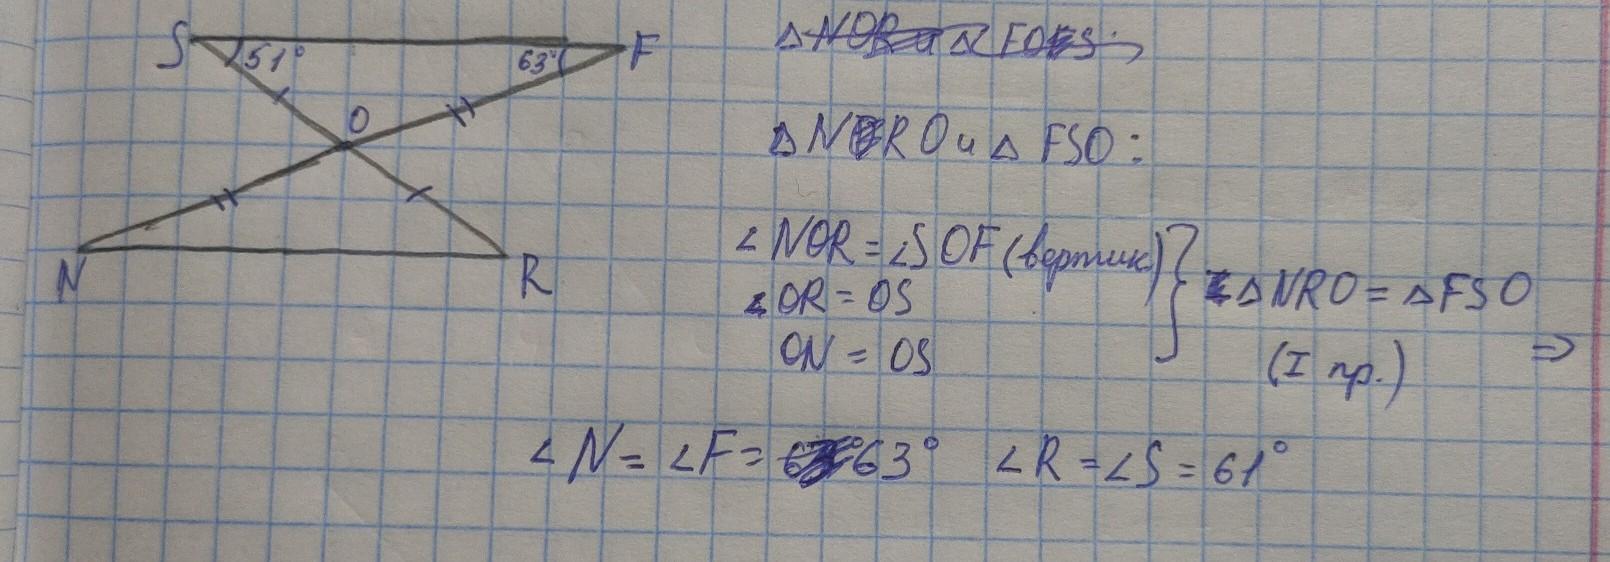 S 51° 63° F
O
N R
△ NRO и △ FSO :
∠ NOR = ∠ SOF (вертик)
OR = OS
ON = OS
△ NRO = △ FSO
(I пр.) ⇒
∠ N = ∠ F = 63° ∠ R = ∠ S = 61°